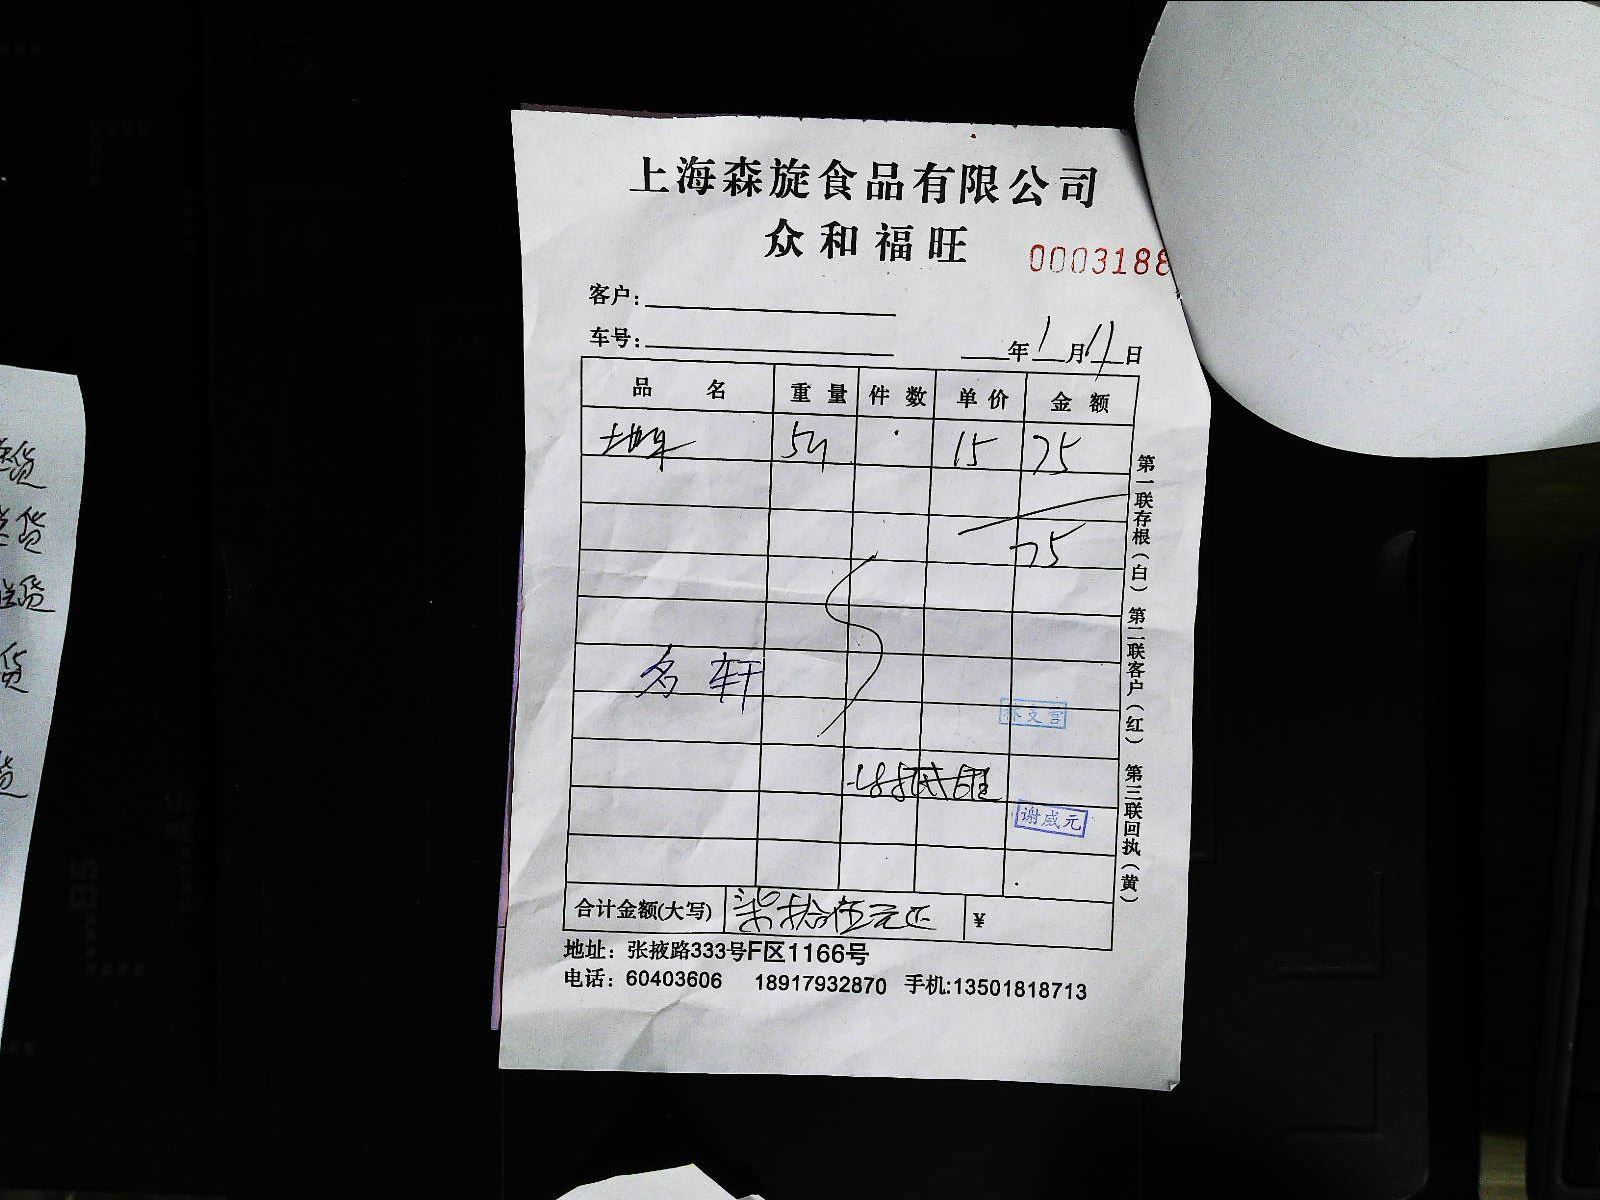 上海森旋食品有限公司
众和福旺
0003188
客户:
车号:
年1月11日
品名 重量 件数 单价 金额
5斤 15 75
75
名轩
谢咸元
合计金额(大写) 柒拾伍元正 ¥
地址：张掖路333号F区1166号
电话：60403606 18917932870 手机:13501818713
第一联存根(白) 第二联客户(红) 第三联回执(黄)
货
货
货
货